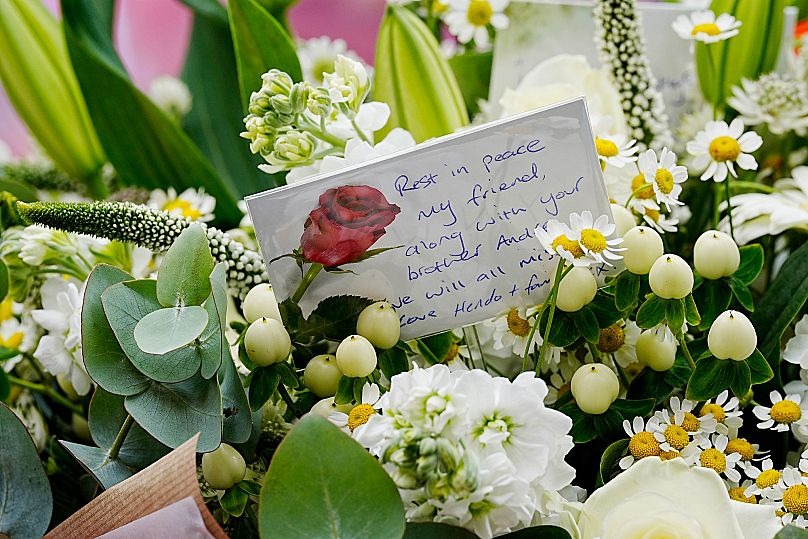 Rest in peace
My friend,
along with your
brother And
we will all mis
Love Hendo + fam